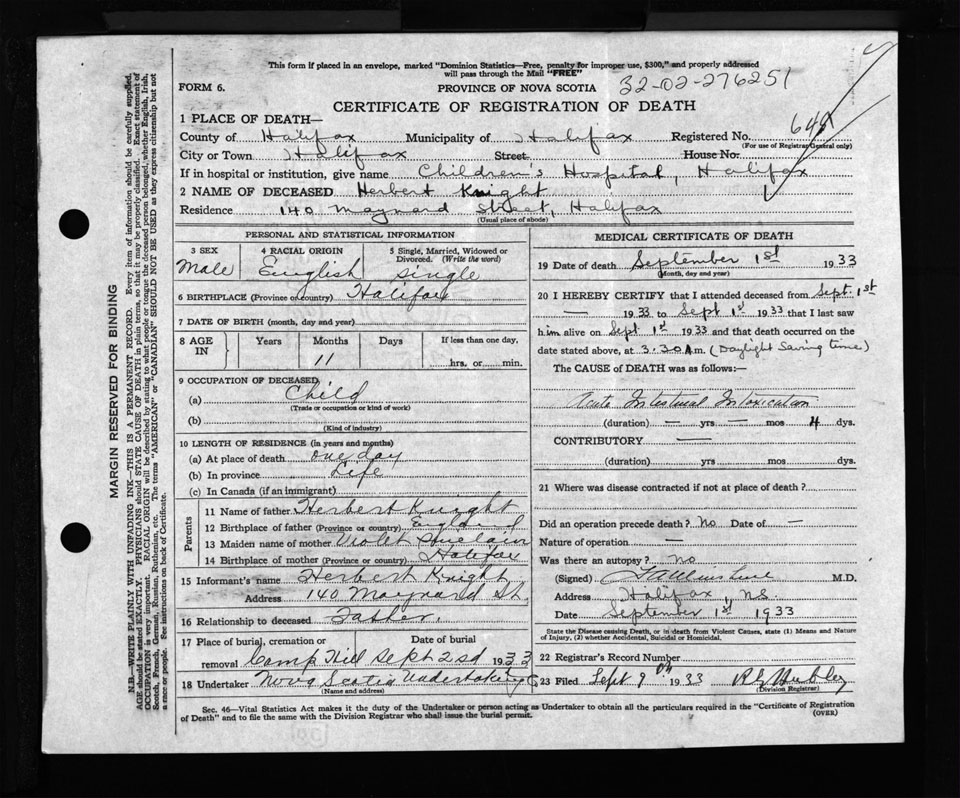 This form if placed in an envelope, marked "Dominion Statistics—Free, penalty for improper use, $300," and properly addressed
will pass through the Mail "FREE"
FORM 6.
PROVINCE OF NOVA SCOTIA
32-02-276251
CERTIFICATE OF REGISTRATION OF DEATH
1 PLACE OF DEATH—
County of Halifax Municipality of Halifax Registered No. 649
(For use of Registrar General only)
City or Town Halifax Street House No.
If in hospital or institution, give name Children's Hospital, Halifax
2 NAME OF DECEASED Herbert Knight
Residence 140 Maynard Street, Halifax
(Usual place of abode)
PERSONAL AND STATISTICAL INFORMATION
3 SEX 4 RACIAL ORIGIN 5 Single, Married, Widowed or
Divorced. (Write the word)
Male English single
6 BIRTHPLACE (Province or country) Halifax
7 DATE OF BIRTH (month, day and year)
8 AGE IN Years Months Days If less than one day,
11 hrs. or min.
9 OCCUPATION OF DECEASED,
(a) Child
(Trade or occupation or kind of work)
(b)
(Kind of industry)
10 LENGTH OF RESIDENCE (in years and months)
(a) At place of death one day
(b) In province Life
(c) In Canada (if an immigrant)
Parents
11 Name of father Herbert Knight
12 Birthplace of father (Province or country) England
13 Maiden name of mother Violet
14 Birthplace of mother (Province or country) Halifax
15 Informant's name Herbert Knight
Address 140 Maynard St.
16 Relationship to deceased Father.
17 Place of burial, cremation or Date of burial
removal Camp Hill Sept 2nd 1933
18 Undertaker Nova Scotia Undertaking Co
(Name and address)
MEDICAL CERTIFICATE OF DEATH
19 Date of death September 1st 1933
(Month, day and year)
20 I HEREBY CERTIFY that I attended deceased from Sept. 1st
— 1933 to Sept 1st 1933 that I last saw
him alive on Sept 1st 1933 and that death occurred on the
date stated above, at 3.30 Am. (Daylight Saving time)
The CAUSE OF DEATH was as follows:—
Acute Intestinal Intoxication
(duration) — yrs — mos 4 dys.
CONTRIBUTORY —
(duration) yrs. mos. dys.
21 Where was disease contracted if not at place of death?
Did an operation precede death? No Date of —
Nature of operation —
Was there an autopsy? no
(Signed) M.D.
Address Halifax, N.S.
Date September 1st 1933
State the Disease causing Death, or in death from Violent Causes, state (1) Means and Nature
of Injury, (2) whether Accidental, Suicidal or Homicidal.
22 Registrar's Record Number
23 Filed Sept 9th 1933
(Division Registrar)
Sec. 46—Vital Statistics Act makes it the duty of the Undertaker or person acting as Undertaker to obtain all the particulars required in the "Certificate of Registration
of Death" and to file the same with the Division Registrar who shall issue the burial permit.
(OVER)
MARGIN RESERVED FOR BINDING
N.B.—WRITE PLAINLY WITH UNFADING INK—THIS IS A PERMANENT RECORD. Every item of information should be carefully supplied.
AGE should be stated EXACTLY. PHYSICIANS should STATE CAUSE OF DEATH in plain terms, so that it may be properly classified. Exact statement of
OCCUPATION is very important. RACIAL ORIGIN will be described by stating to what people or tongue the deceased person belonged, whether English, Irish,
Scotch, French, German, Russian, Ruthenian, etc. The terms "AMERICAN" or "CANADIAN" SHOULD NOT BE USED as they express citizenship but not
a race or people. See instructions on back of Certificate.